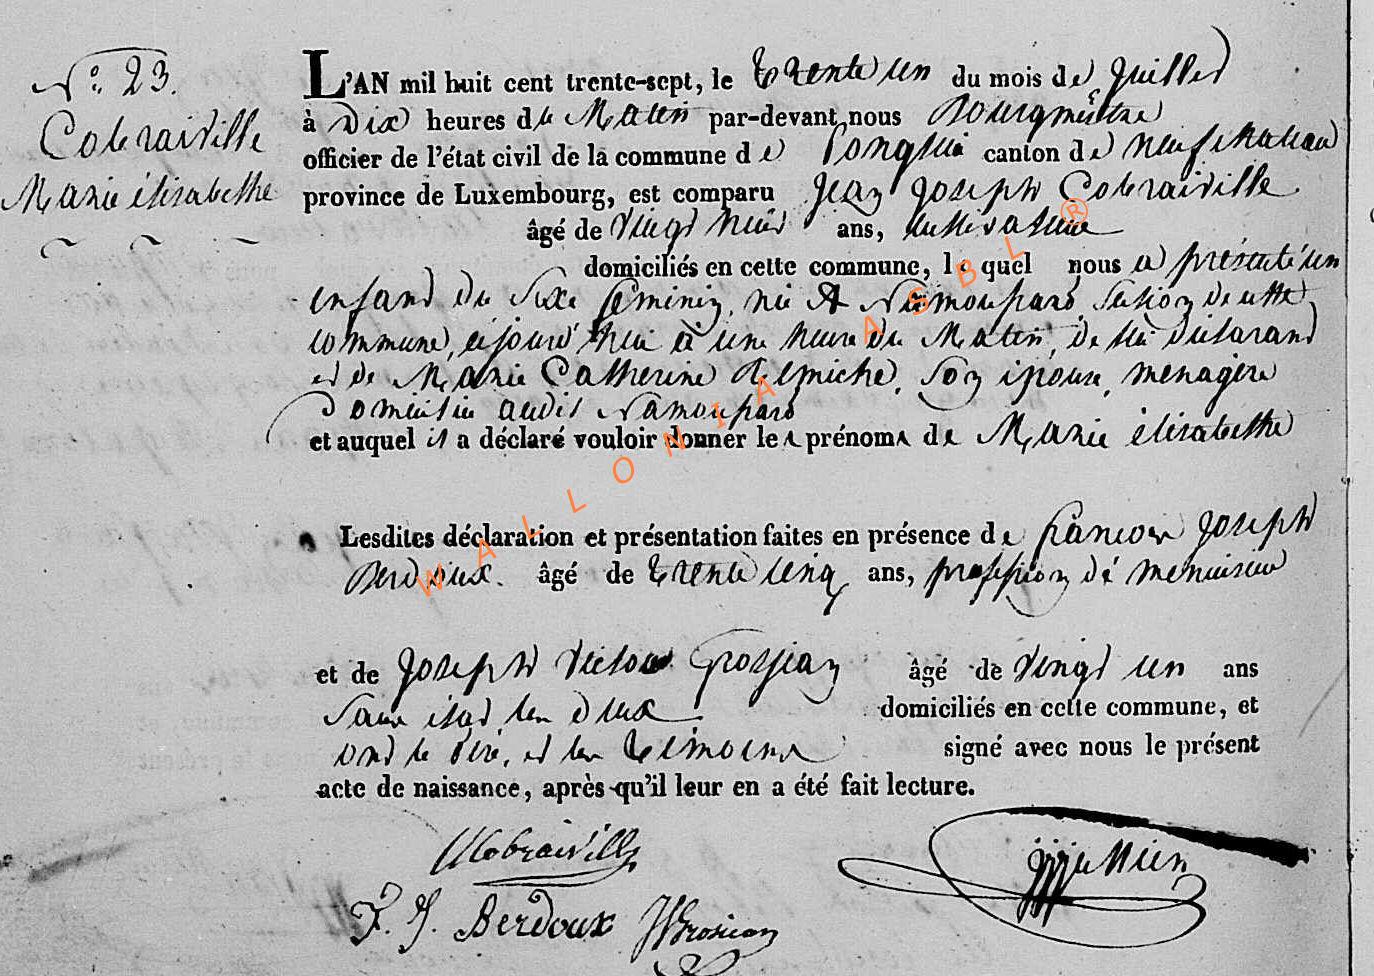 N° 23.
Cobraiville
Marie élisabethe
L'AN mil huit cent trente-sept, le trente un du mois de Juillet
à Dix heures du Matin par-devant nous Bourgmestre
officier de l'état civil de la commune de Longlier canton de neufchateau
province de Luxembourg, est comparu Jean Joseph Cobraiville
âgé de vingt neuf ans, cultivateur
domiciliés en cette commune, le quel nous a présenté un
enfant du Sexe féminin, née A Namoupard, Section de cette
commune, ajourd'hui à une heure du Matin, de lui Déclarant
et de Marie Catherine Son épouse, menagère
Domiciliée audit Namoupard
et auquel il a déclaré vouloir donner les prénoms de Marie élisabethe
Lesdites déclaration et présentation faites en présence de françois Joseph
Berdoux. âgé de trente cinq ans, proffession de menuisier
et de Joseph Victor Grosjean âgé de vingt un ans
Sans état tous deux domiciliés en cette commune, et
ont le Père, et les témoins signé avec nous le présent
acte de naissance, après qu'il leur en a été fait lecture.
F. J. Berdoux JVGrosjean
WALLONIA ASBL ®